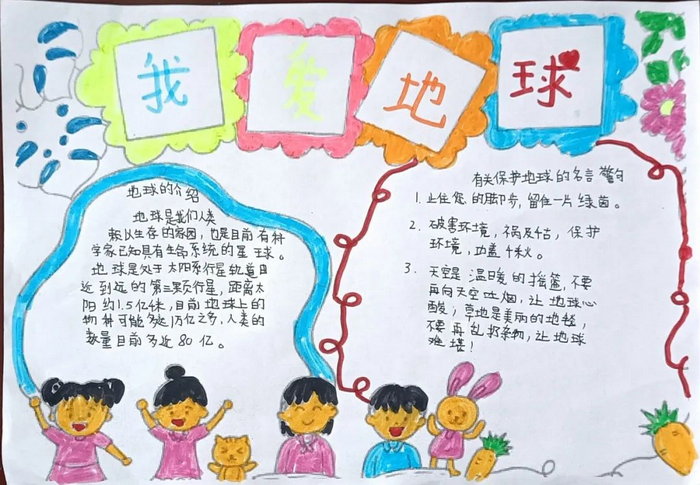 我爱地球
地球的介绍
地球是我们人类
赖以生存的家园，也是目前有科
学家已知具有生命系统的星球。
地球是处于太阳系行星轨道由
近到远的第三颗行星，距离太
阳约1.5亿千米，目前地球上的
物种可能多达1万亿之多，人类的
数量目前多近80亿。
有关保护地球的名言警句
1.止住您的脚步，留住一片绿茵。
2.破害环境，祸及千古，保护
环境，功盖千秋。
3.天空是温暖的摇篮，不要
再向天空吐烟，让地球心
酸；草地是美丽的地毯，
不要再乱扔杂物，让地球
难堪！